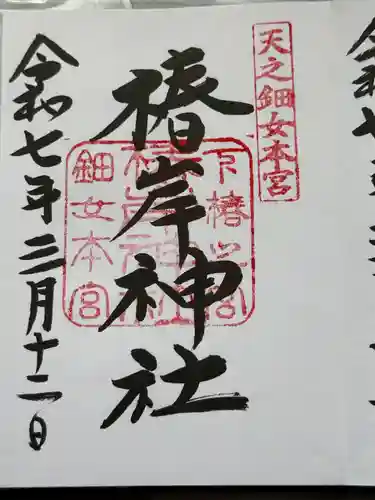 天之鈿女本宮
椿岸神社
下椿之宮
椿岸神社
鈿女本宮
令和七年三月十二日